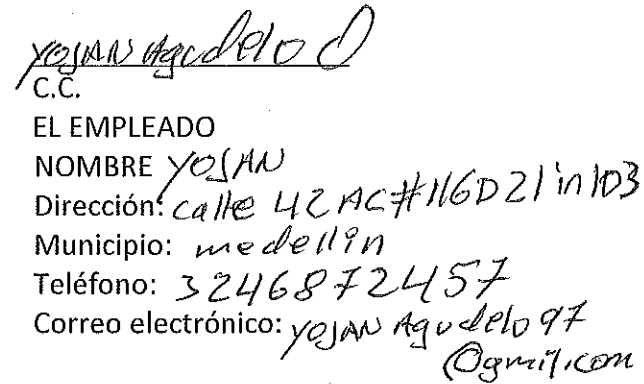 YOJAN Agudelo O
C.C.
EL EMPLEADO
NOMBRE YOJAN
Dirección: calle 42 AC#116D21 in 103
Municipio: medellin
Teléfono: 3246872457
Correo electrónico: YOJAN Agudelo 97
@gmil.com